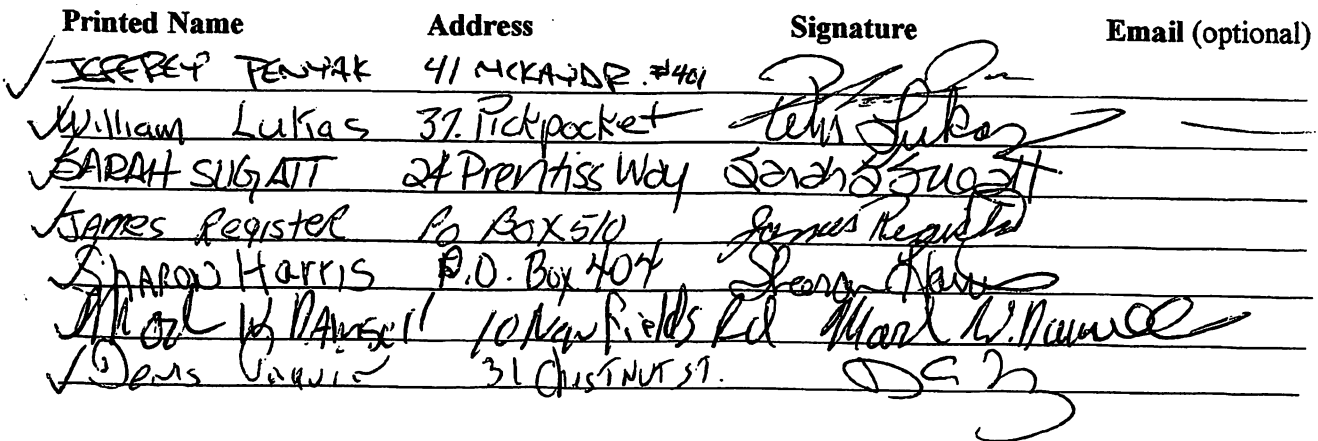 Printed Name Address Signature Email (optional)
✓ JEFFREY PENYAK 41 MCKAY DR. #401
✓ William Lukas 37 Pickpocket Lukas
✓ SARAH SUGATT 24 Prentiss Way Sarah S Sugatt
✓ JAMES Register Po Box 510 James Register
✓ SHARON Harris P.O. Box 404 Sharon Harris
10 Newfields Rd Mark W.
✓ Denis 31 CHESTNUT ST.